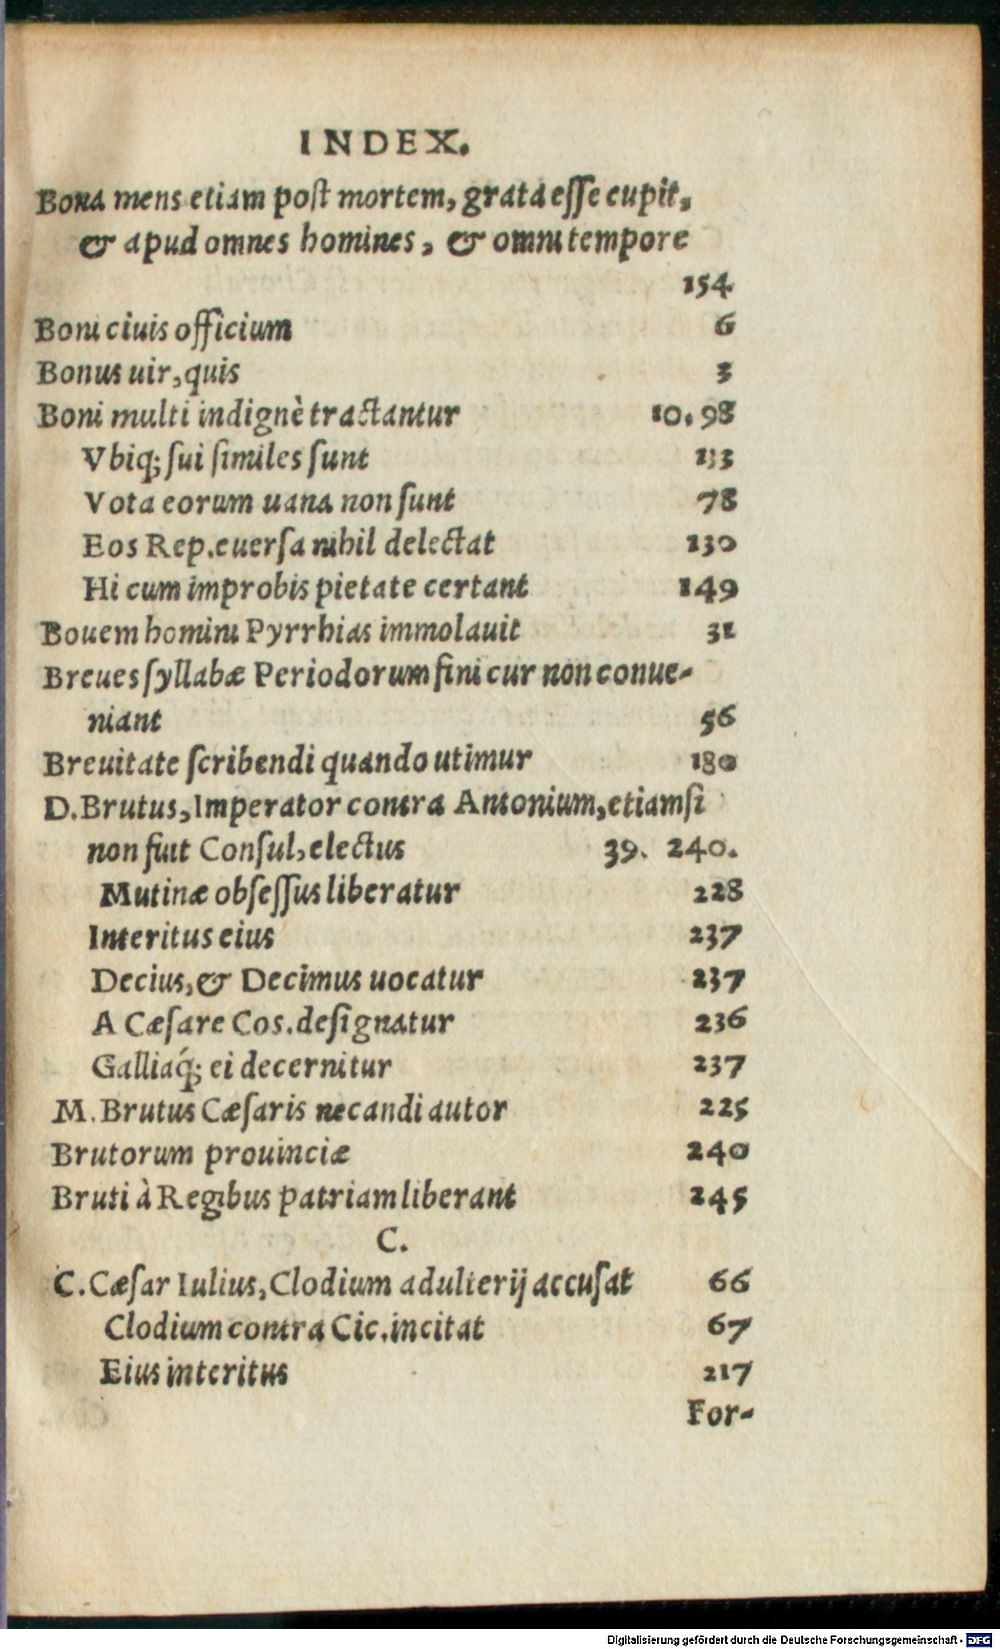 INDEX.
Bona mens etiam poſt mortem, grata eſſe cupit,
& apud omnes homines, & omni tempore
154
Boni ciuis officium 6
Bonus uir, quis 3
Boni multi indignè tractantur 10. 98
Vbiq; ſui ſimiles ſunt 133
Vota eorum uana non ſunt 78
Eos Rep. euerſa nihil delectat 130
Hi cum improbis pietate certant 149
Bouem homini Pyrrhias immolauit 31
Breues ſyllabæ Periodorum fini cur non conue-
niant 56
Breuitate ſcribendi quando utimur 180
D. Brutus, Imperator contra Antonium, etiamſi
non fuit Conſul, electus 39. 240.
Mutinæ obſeſſus liberatur 228
Interitus eius 237
Decius, & Decimus uocatur 237
A Cæſare Cos. deſignatur 236
Galliaq́; ei decernitur 237
M. Brutus Cæſaris necandi autor 225
Brutorum prouinciæ 240
Bruti à Regibus patriam liberant 245
C.
C. Cæſar Iulius, Clodium adulterij accuſat 66
Clodium contra Cic. incitat 67
Eius interitus 217
For-
Digitalisierung gefördert durch die Deutsche Forschungsgemeinschaft - DFG